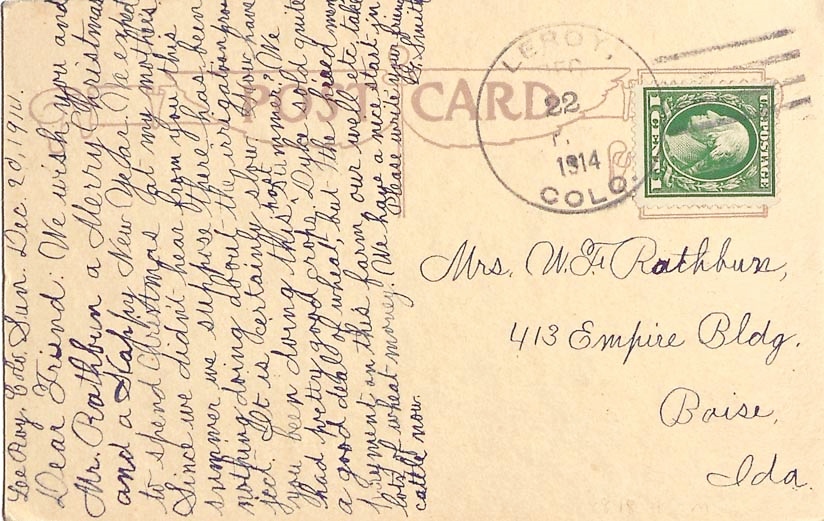 LeRoy, Colo. Sun. Dec. 20, 1914.
Dear Friend: We wish you and
Mr. Rathbun a Merry Christmas
and a Happy New Year. We expect
to spend Christmas at my mothers.
Since we didn't hear from you this
summer we suppose there has been
nothing doing about the irrigation pro-
ject. It is certainly slow. How have
you been doing this past summer? We
had pretty good crops. Duke sold quite
a good deal of wheat, but the hired men,
payment on this farm, our well etc take
lots of wheat money. We have a nice start in
cattle now.
Please write your friend
Smith
POST CARD
LEROY,
DEC
22
1914
COLO.
U.S. POSTAGE
1 CENT 1
Mrs. W. F. Rathbun,
413 Empire Bldg.
Boise,
Ida.